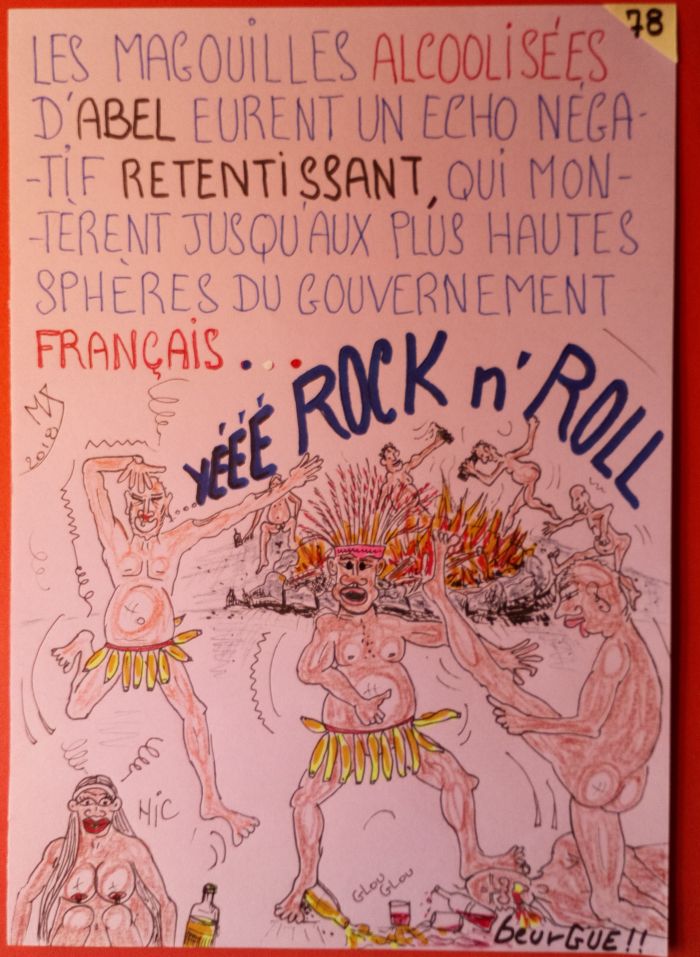 78
LES MAGOUILLES ALCOOLISÉES
D'ABEL EURENT UN ECHO NÉGA-
-TIF RETENTISSANT, QUI MON-
-TÈRENT JUSQU'AUX PLUS HAUTES
SPHÈRES DU GOUVERNEMENT
FRANÇAIS...
...YÉÉÉ ROCK n' ROLL
2018
HIC
GLOU
GLOU
beurGUE!!